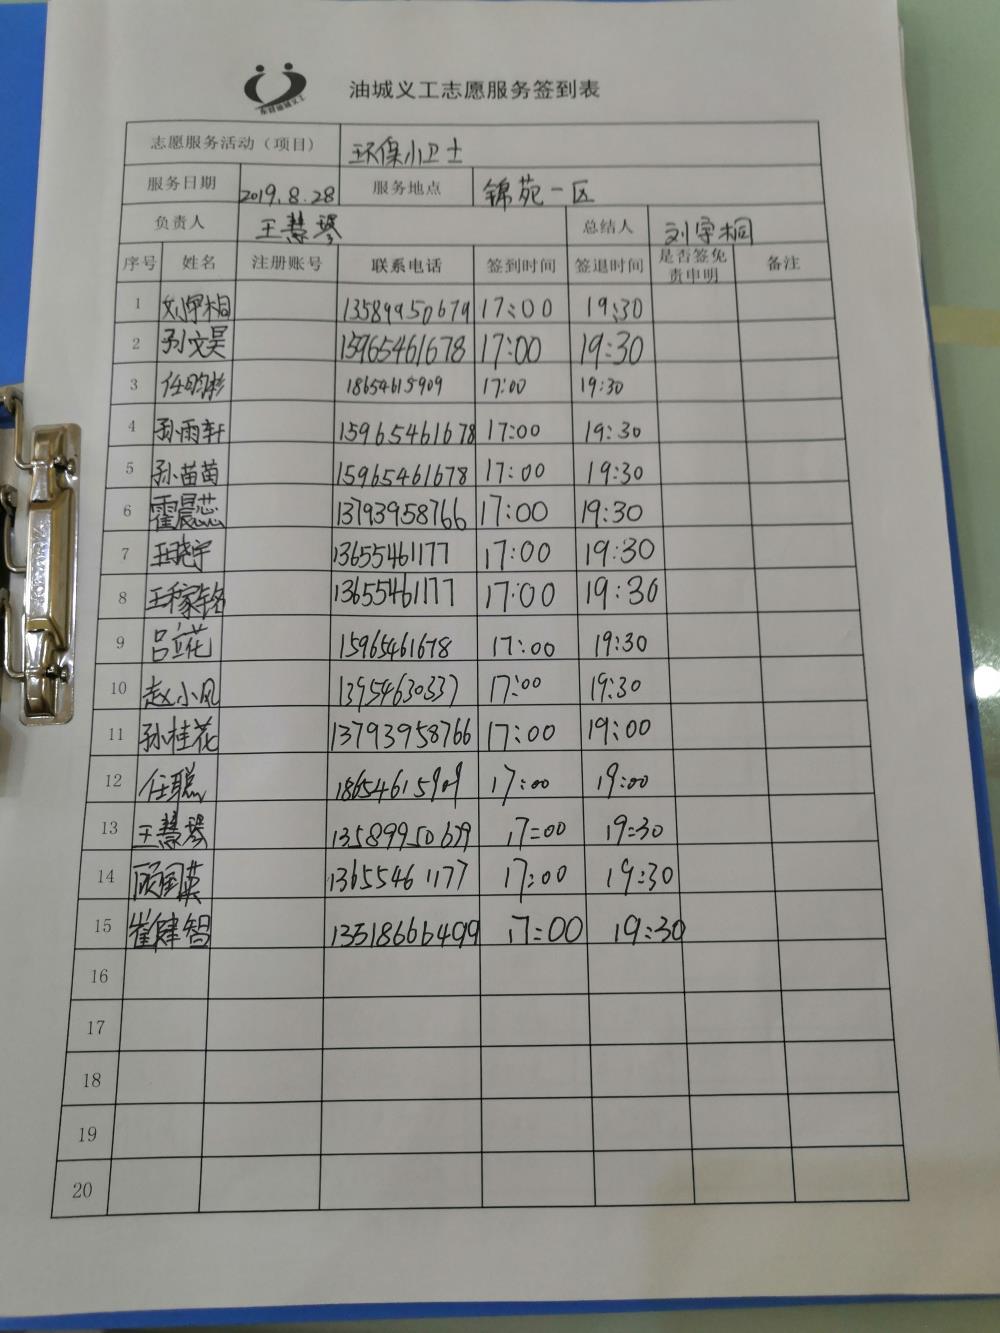 油城义工志愿服务签到表
志愿服务活动（项目） 环保小卫士
服务日期 2019.8.28 服务地点 锦苑一区
负责人 王慧琴 总结人 刘宇桐
序号 姓名 注册账号 联系电话 签到时间 签退时间 是否签免责申明 备注
1 刘宇桐 13589950679 17:00 19:30
2 孙文昊 15965461678 17:00 19:30
3 任昀杉 18654615909 17:00 19:30
4 孙雨轩 15965461678 17:00 19:30
5 孙苗苗 15965461678 17:00 19:30
6 霍晨蕊 13793958766 17:00 19:30
7 王晓宇 13655461177 17:00 19:30
8 王稼铭 13655461177 17:00 19:30
9 吕立花 15965461678 17:00 19:30
10 赵小凤 13954630337 17:00 19:30
11 孙桂花 13793958766 17:00 19:00
12 任聪 18654615909 17:00 19:00
13 王慧琴 13589950679 17:00 19:30
14 顾国英 13655461177 17:00 19:30
15 崔健智 13518666499 17:00 19:30
16
17
18
19
20